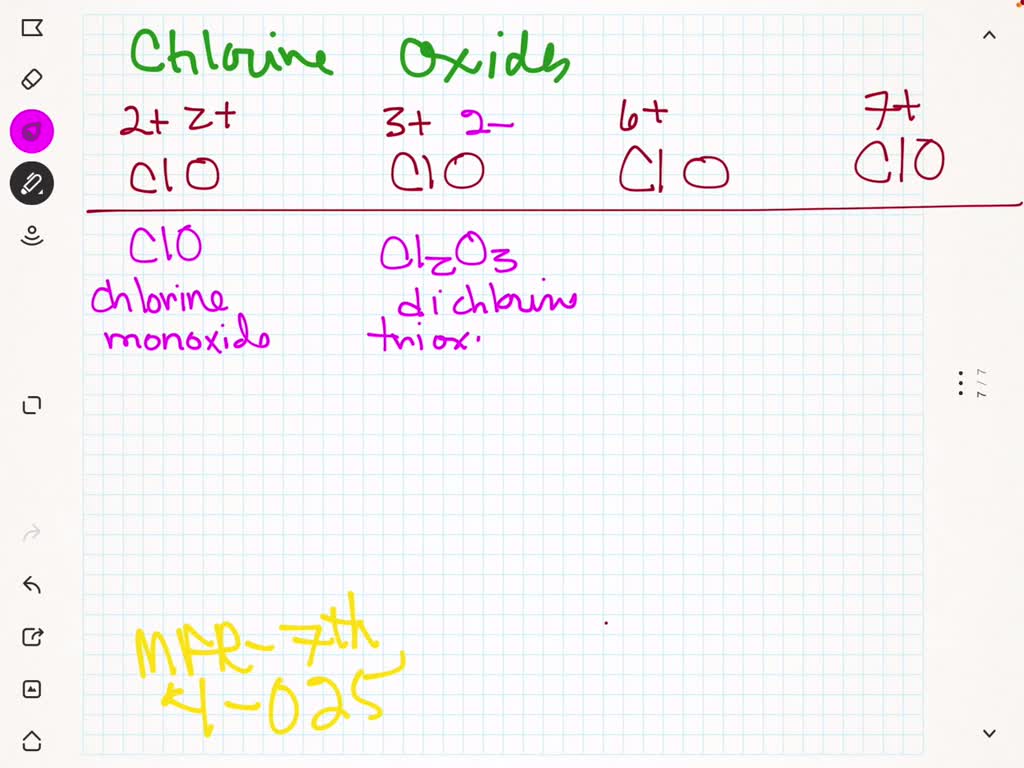 Chlorine Oxides
2+ 2+ 3+ 2- 6+ 7+
ClO ClO ClO ClO
ClO Cl₂O₃
chlorine dichlorine
monoxide triox.
7/7
MFR-7th
4-025